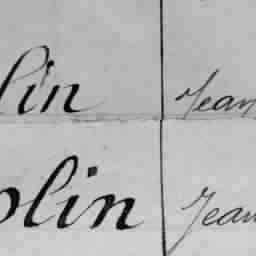 lin Jean
plin Jean